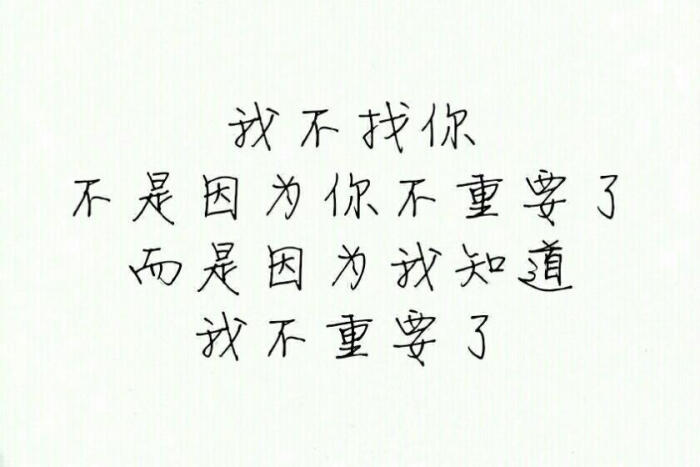 我不找你
不是因为你不重要了
而是因为我知道
我不重要了